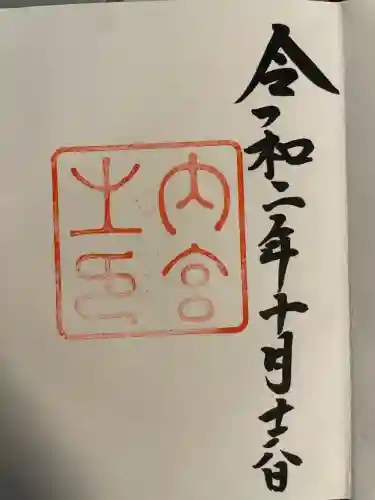 令和二年十月十六日
内宮
之印